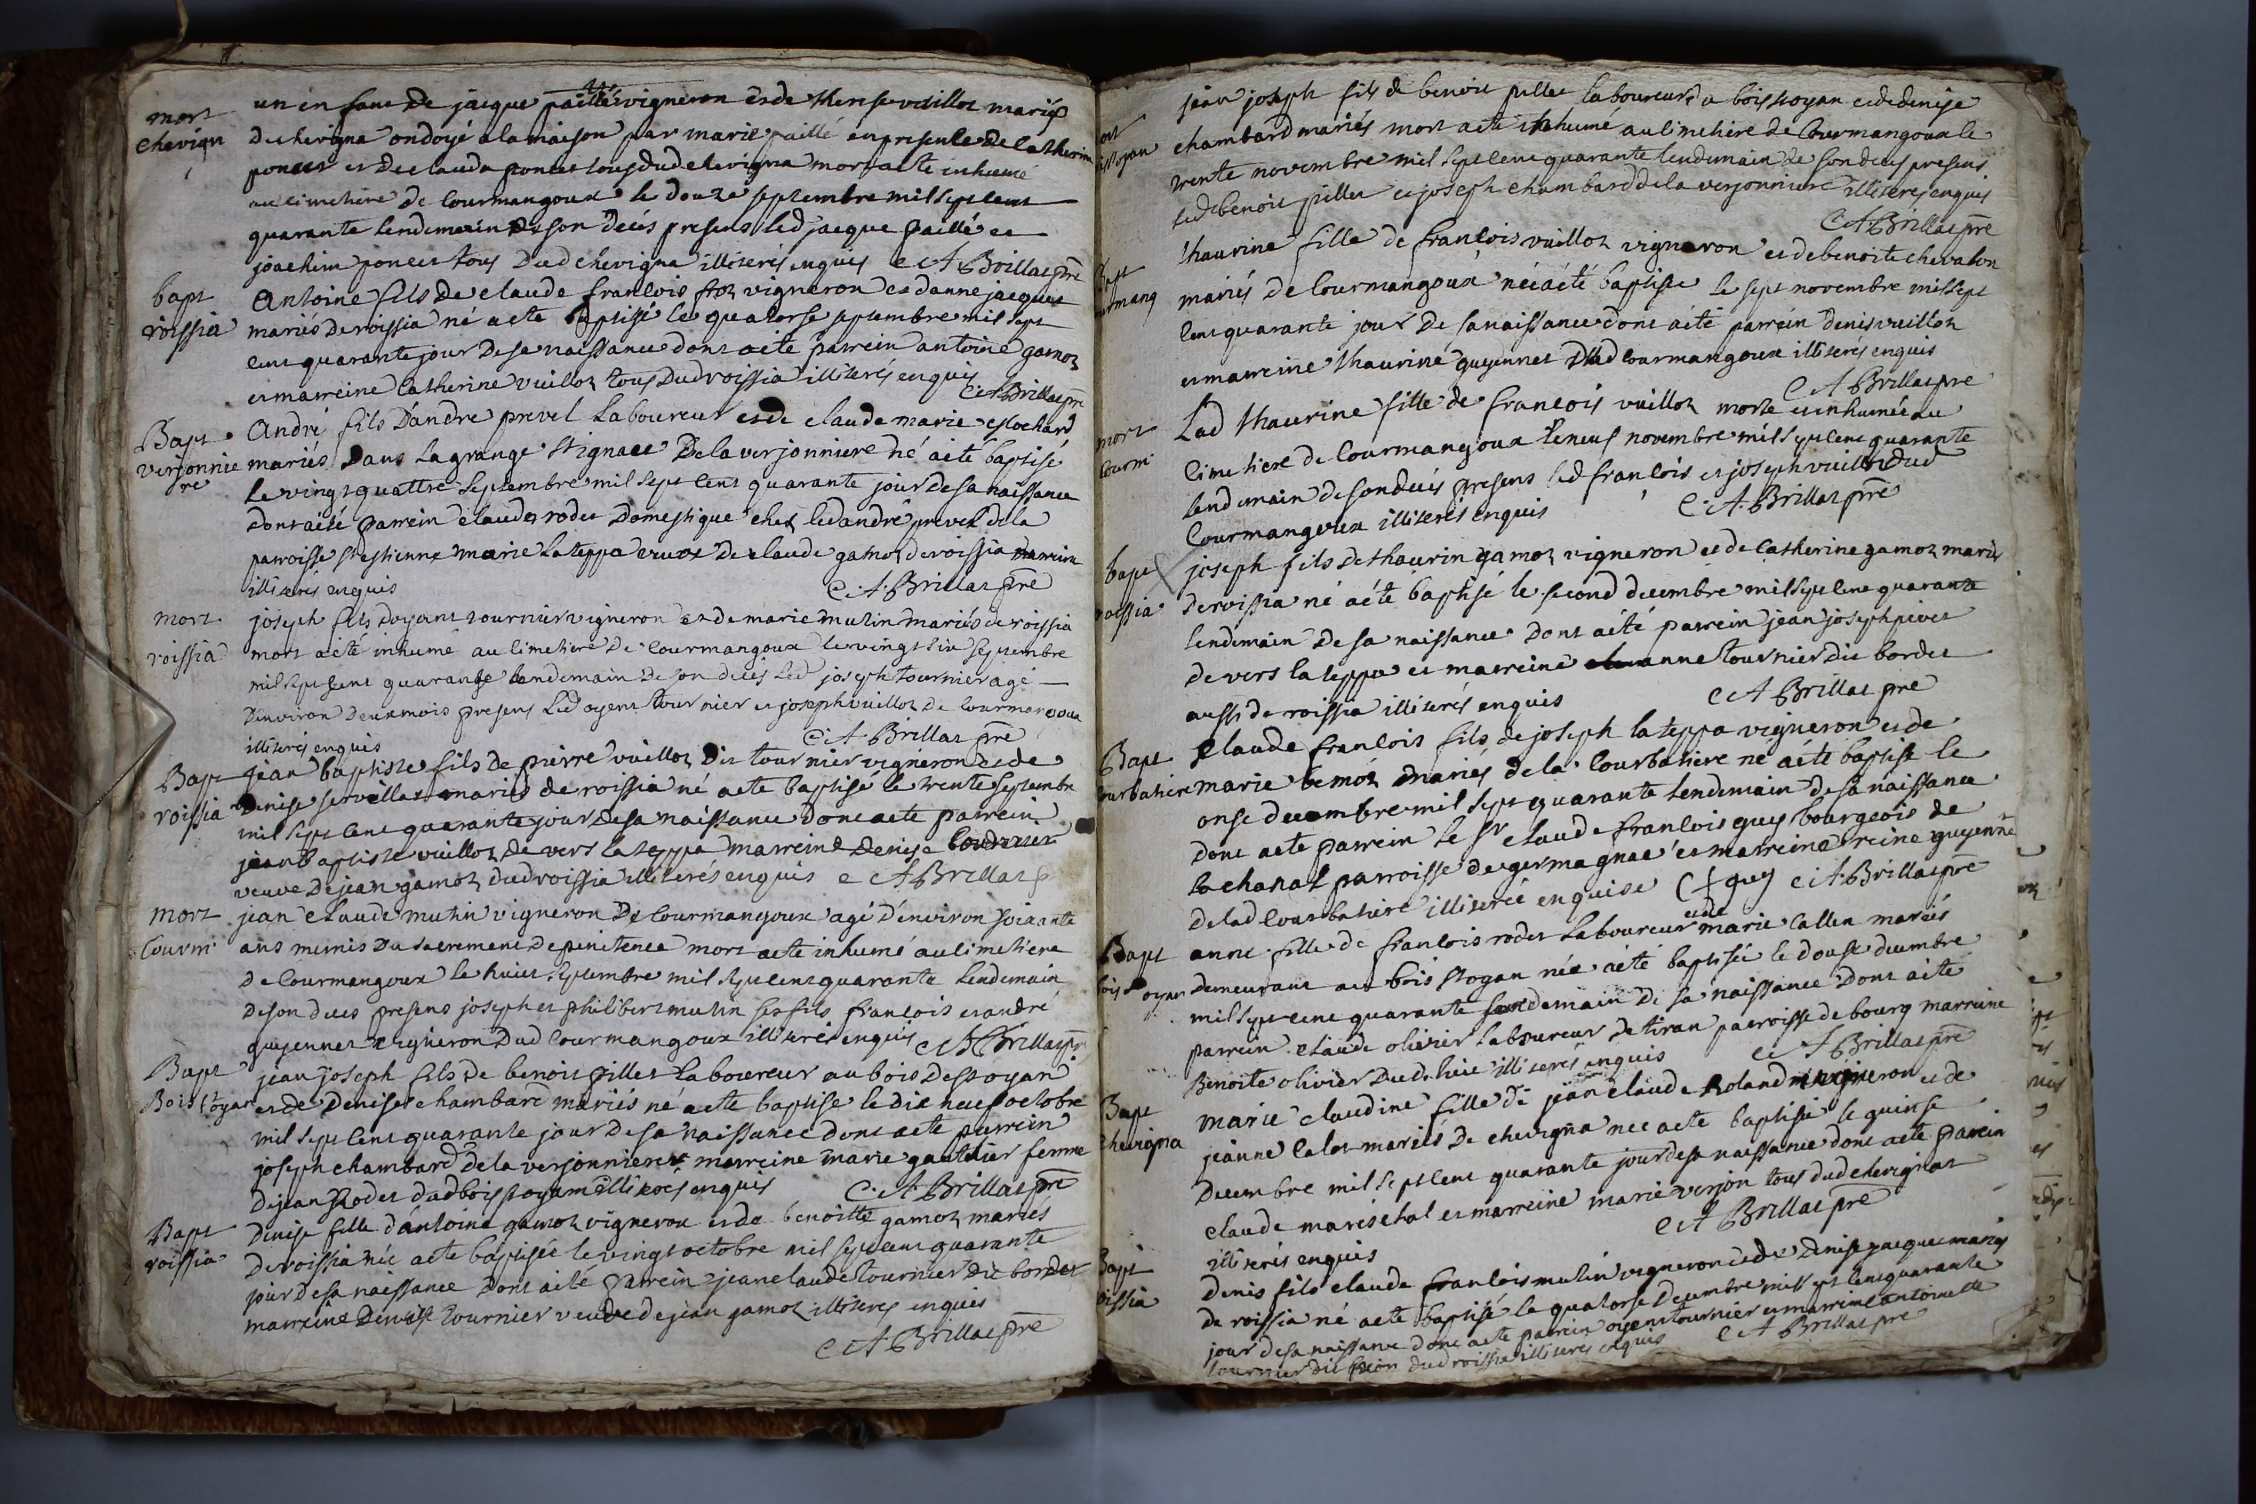 mort
chevign
un enfant de jacque paillé vigneron et de therese vuillot mariés
de chevigna ondoyé a la maison par marie paillé en presence de catherine
poncet et de clauda poncet tous dud chevigna mort a eté inhumé
au cimetiere de Courmangoux le douze septembre mil sept cent
quarante lendemain de son decés presens led jacque paillé et
joachim poncet tous dud chevigna illiterés enquis C A Brillat pre
bapt
roissia
Antoine fils de claude francois vigneron et danne jacquet
mariés de roissia né a eté baptisé le quatorse septembre mil sept
cent quarante jour de sa naissance dont a eté parrein antoine gamoz
et marreine Catherine vuilloz tous dud roissia illiterés enquis
C A Brillat pre
Bapt
verjonnie
re
André fils D'andre prevel Laboureur et de claude marie
mariés dans la grange De la verjonniere né a eté baptisé
Le vingt quattre septembre mil sept cent quarante jour de sa naissance
dont a eté parrein claude rodet domestique chez led andré prevel de la
parroisse st estienne marie la teppa de claude gamoz de roissia marreine
illiterés enquis C. A. Brillat pre
mort
roissia
joseph fils doyent tournier vigneron et de marie mutin mariés de roissia
mort a eté inhumé au cimetiere de Courmangoux le vingt six septembre
mil sept cent quarante lendemain de son decés led joseph tournier agé
D'environ deux mois presens led oyent tournier et joseph vuilloz de Courmangoux
illiterés enquis C. A. Brillat pre
Bapt
roissia
jean baptiste fils de pierre vuilloz dit tournier vigneron et de
Denise servillat mariés de roissia né a eté baptisé le trente septembre
mil sept cent quarante jour de sa naissance dont a eté parrein
jean baptiste vuilloz de vers la teppa marreine Denise
veuve de jean gamoz dud roissia illiterés enquis C A Brillat p
mort
Courm
jean claude mutin vigneron de Courmangoux agé d'environ soixante
ans munis du sacrement de penitence mort a eté inhumé au cimetiere
de Courmangoux le huict septembre mil sept cent quarante Lendemain
de son deces presens joseph et philibert mutin ses fils francois et andré
guyennet vigneron dud Courmangoux illiterés enquis C A Brillat pr
Bapt
Bois stoyan
jean joseph fils de benoit pillet Laboureur au bois de stoyan
et de Denise chambard mariés né a eté baptisé le dix neuf octobre
mil sept cent quarante jour de sa naissance dont a eté parrein
joseph chambard de la verjonniere et marreine marie gauthier femme
de jean Rodet dud bois stoyan illiterés enquis C. A. Brillat pre
Bapt
roissia
Denise fille d'antoine gamoz vigneron et de benoitte gamoz mariés
De roissia née a eté baptisée le vingt octobre mil sept cent quarante
jour de sa naissance dont a eté parrein jean claude tournier dit bordet
marreine Denise tournier veuve de jean gamoz illiterés enquis
C A Brillat pre
mort
stoyan
jean joseph fils de benoit pillet laboureur du bois stoyan et de denise
chambard mariés mort a eté inhumé au cimetiere de Courmangoux le
trente novembre mil sept cent quarante lendemain de son deces presens
led benoit pillet et joseph chambard de la verjonniere illiterés enquis
C A Brillat pre
Bapt
urmang
thaurine fille de francois vuilloz vigneron et de benoite chevalon
mariés de Courmangoux née a eté baptisée le sept novembre mil sept
cent quarante jour de sa naissance dont a eté parrein denis vuilloz
et marreine thaurine guyennet dud Courmangoux illiterés enquis
C A Brillat pre
mort
Courm
Lad thaurine fille de francois vuilloz morte et inhumée au
Cimetiere de Courmangoux le neuf novembre mil sept cent quarante
lendemain de son deces presens led francois et joseph vuilloz dud
Courmangoux illiterés enquis C. A. Brillat pre
bapt
roissia
joseph fils de thaurin gamoz vigneron et de Catherine gamoz mariés
de roissia né a eté baptisé le second decembre mil sept cent quarante
lendemain de sa naissance dont a eté parrein jean joseph pivet
de vers la teppa et marreine anne tournier dit bordet
aussi de roissia illiterés enquis C A Brillat pre
Bapt
Courbatiere
Claude francois fils de joseph la teppa vigneron et de
marie bemoz mariés de la Courbatiere né a eté baptisé le
onse decembre mil sept quarante lendemain de sa naissance
dont a eté parrein le Sr claude francois guy bourgeois de
la chanal parroisse de germagnat et marreine reine guyennet
de lad Courbatiere illiterée enquise guy C. A. Brillat pre
Bapt
bois stoyan
anne fille de francois rodet Laboureur et de marie Callen mariés
demeurant au bois stoyan née a eté baptisée le douse decembre
mil sept cent quarante lendemain de sa naissance dont a eté
parrein claude olivier laboureur de tiran parroisse de bourg marreine
Benoite olivier dud. lieu illiterés enquis C A Brillat pre
Bapt
chevigna
marie claudine fille de jean claude Roland vigneron et de
jeanne Calot mariés de chevigna née a eté baptisée le quinse
Decembre mil sept cent quarante jour de sa naissance dont a eté parrein
claude maréschal et marreine marie verjon tous dud chevigna
illiterés enquis C A Brillat pre
Bapt
oissia
Denis fils claude francois mutin vigneron et de denise jacquet mariés
de roissia né a eté baptisé le quatorse decembre mil sept cent quarante
jour de sa naissance dont a eté parrein oyent tournier et marreine antoinette
tournier dit dud roissia illiterés enquis C A Brillat pre